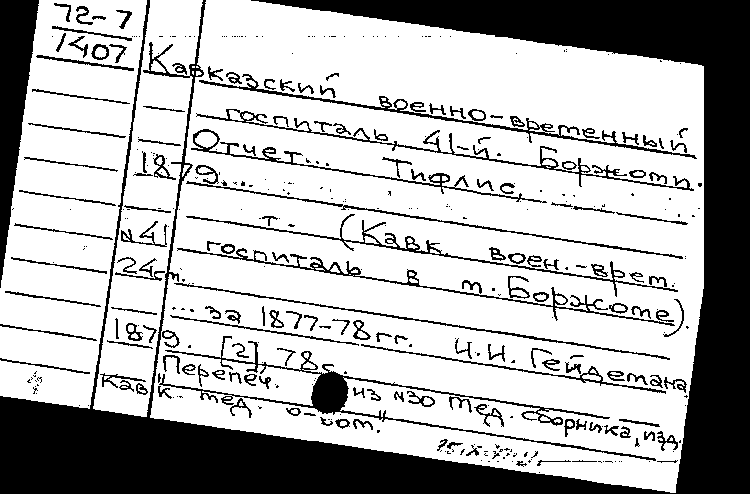 72-7
1407
Кавказский военно-временный
госпиталь, 41-й. Боржоми.
Отчет... Тифлис,
1879...
т. (Кавк. воен.-врет.
№41 госпиталь в т. Боржоме).
24ст.
... за 1877-78гг. И.И. Гейдемана
1879. [2], 78с.
Перепеч. из №30 Мед. сборника, изд.
Кавк. мед. о-вом."